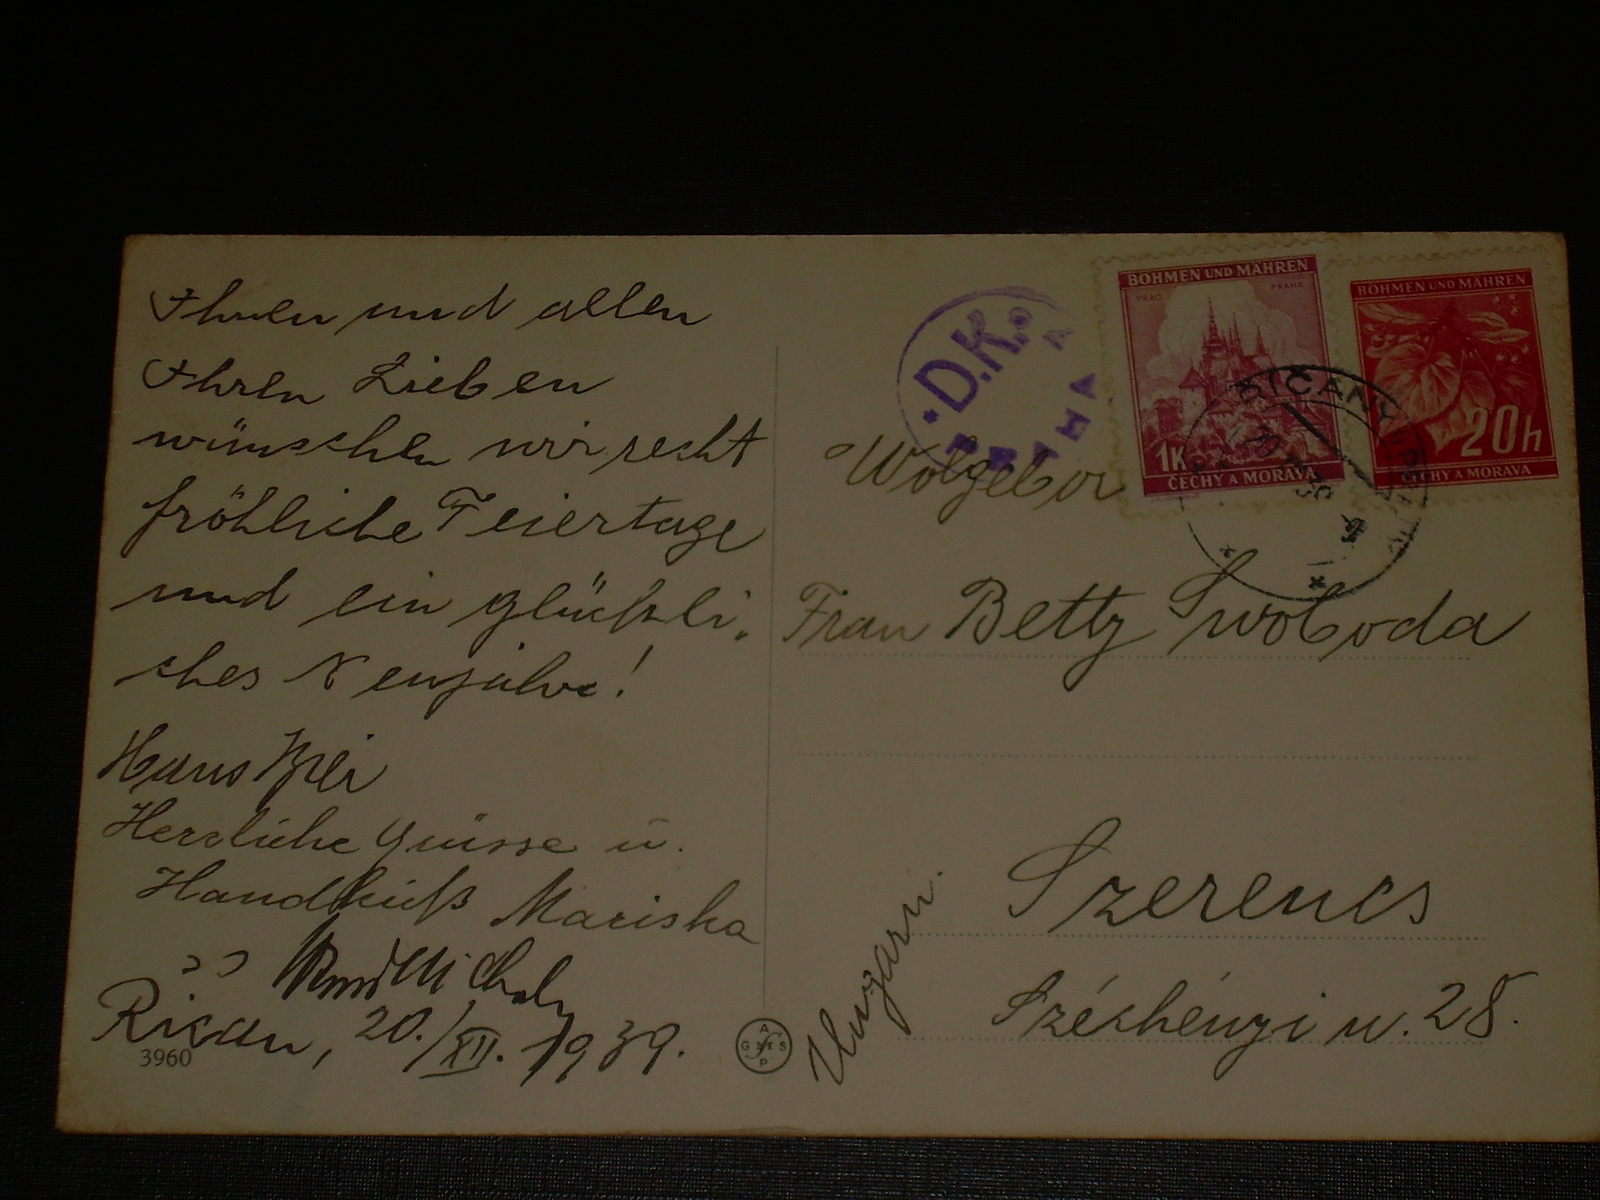 Ihnen und allen
Ihren Lieben
wünschen wir recht
fröhliche Feiertage
und ein glückli-
ches Neujahr!
Hans
Herzliche Grüsse u.
Handkuß Mariska
Řičan, 20./XII. 1939.
3960
D.K.
BÖHMEN UND MÄHREN
PRAG PRAHA
1K
ČECHY A MORAVA
BÖHMEN UND MÄHREN
20h
ČECHY A MORAVA
ŘÍČANY
Wolgebor
Frau Betty Swoboda
Szerencs
Széchényi u. 28.
Ungarn.